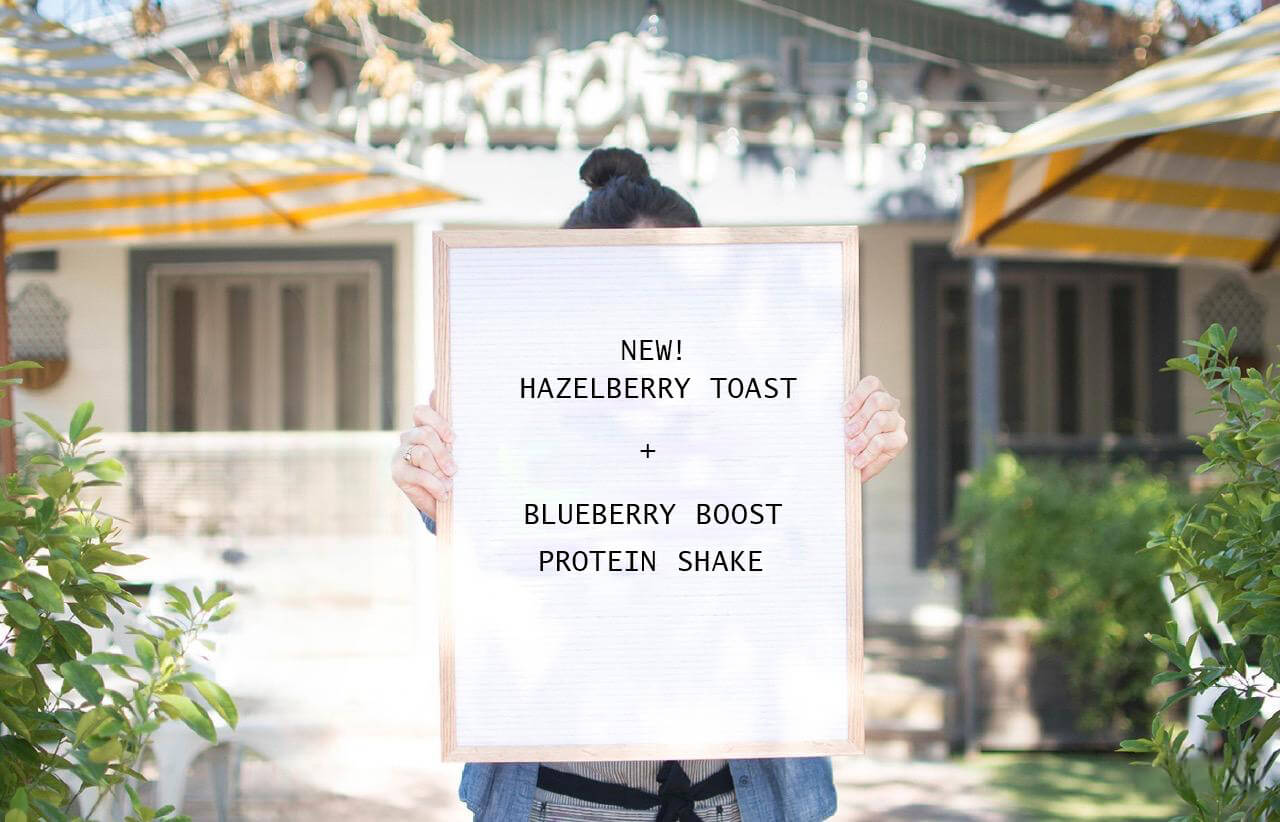 NEW!
HAZELBERRY TOAST
+
BLUEBERRY BOOST
PROTEIN SHAKE